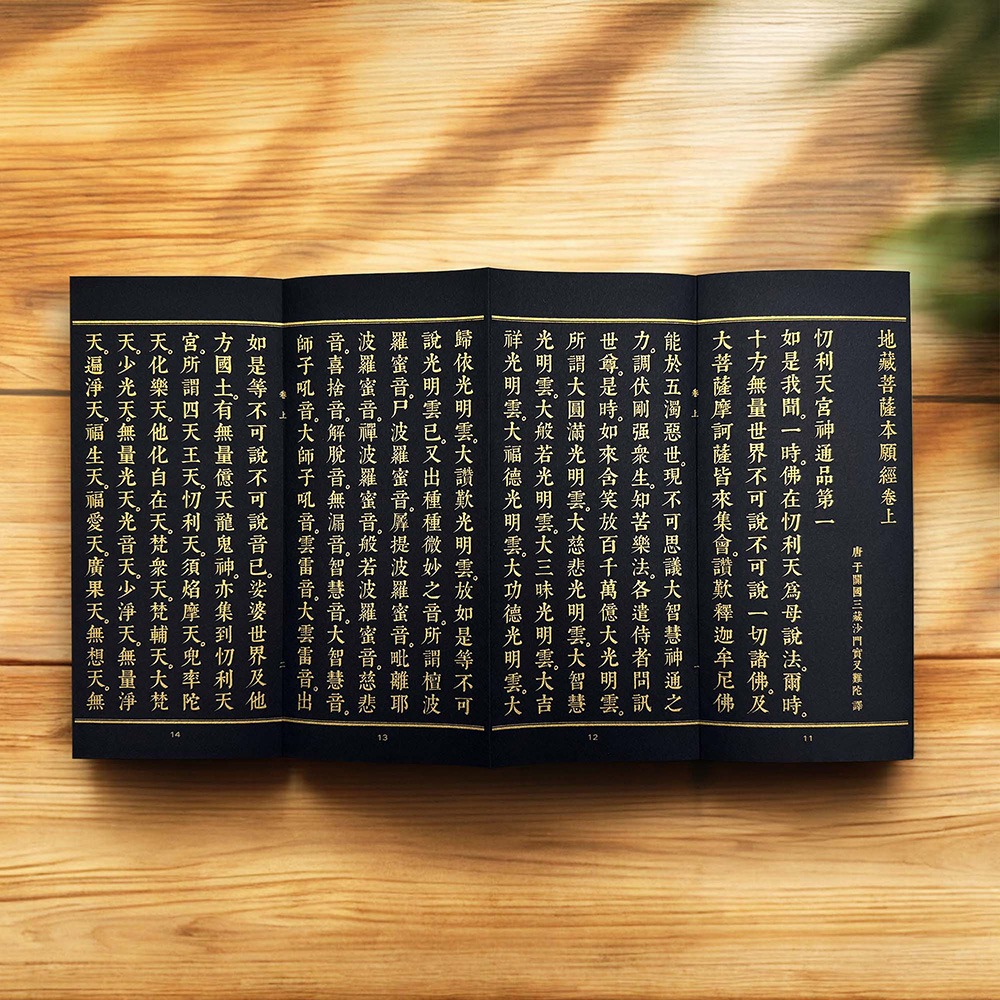 地藏菩薩本願經卷上
唐于闐國三藏沙門實叉難陀 譯
忉利天宮神通品第一
如是我聞。一時佛在忉利天爲母說法。爾時。
十方無量世界不可說不可說一切諸佛。及
大菩薩摩訶薩皆來集會。讚歎釋迦牟尼佛
11
能於五濁惡世。現不可思議大智慧神通之
力。調伏剛强衆生。知苦樂法。各遣侍者問訊
世尊。是時。如來含笑放百千萬億大光明雲。
所謂大圓滿光明雲。大慈悲光明雲。大智慧
光明雲。大般若光明雲。大三昧光明雲。大吉
祥光明雲。大福德光明雲。大功德光明雲。大
12
歸依光明雲。大讚歎光明雲。放如是等不可
說光明雲已。又出種種微妙之音。所謂檀波
羅蜜音。尸波羅蜜音。羼提波羅蜜音。毗離耶
波羅蜜音。禪波羅蜜音。般若波羅蜜音。慈悲
音。喜捨音。解脫音。無漏音。智慧音。大智慧音。
師子吼音。大師子吼音。雲雷音。大雲雷音。出
13
卷上
二
如是等不可說不可說音已。娑婆世界及他
方國土。有無量億天龍鬼神。亦集到忉利天
宮。所謂四天王天。忉利天。須焰摩天。兜率陀
天。化樂天。他化自在天。梵衆天。梵輔天。大梵
天。少光天。無量光天。光音天。少淨天。無量淨
天。遍淨天。福生天。福愛天。廣果天。無想天。無
14